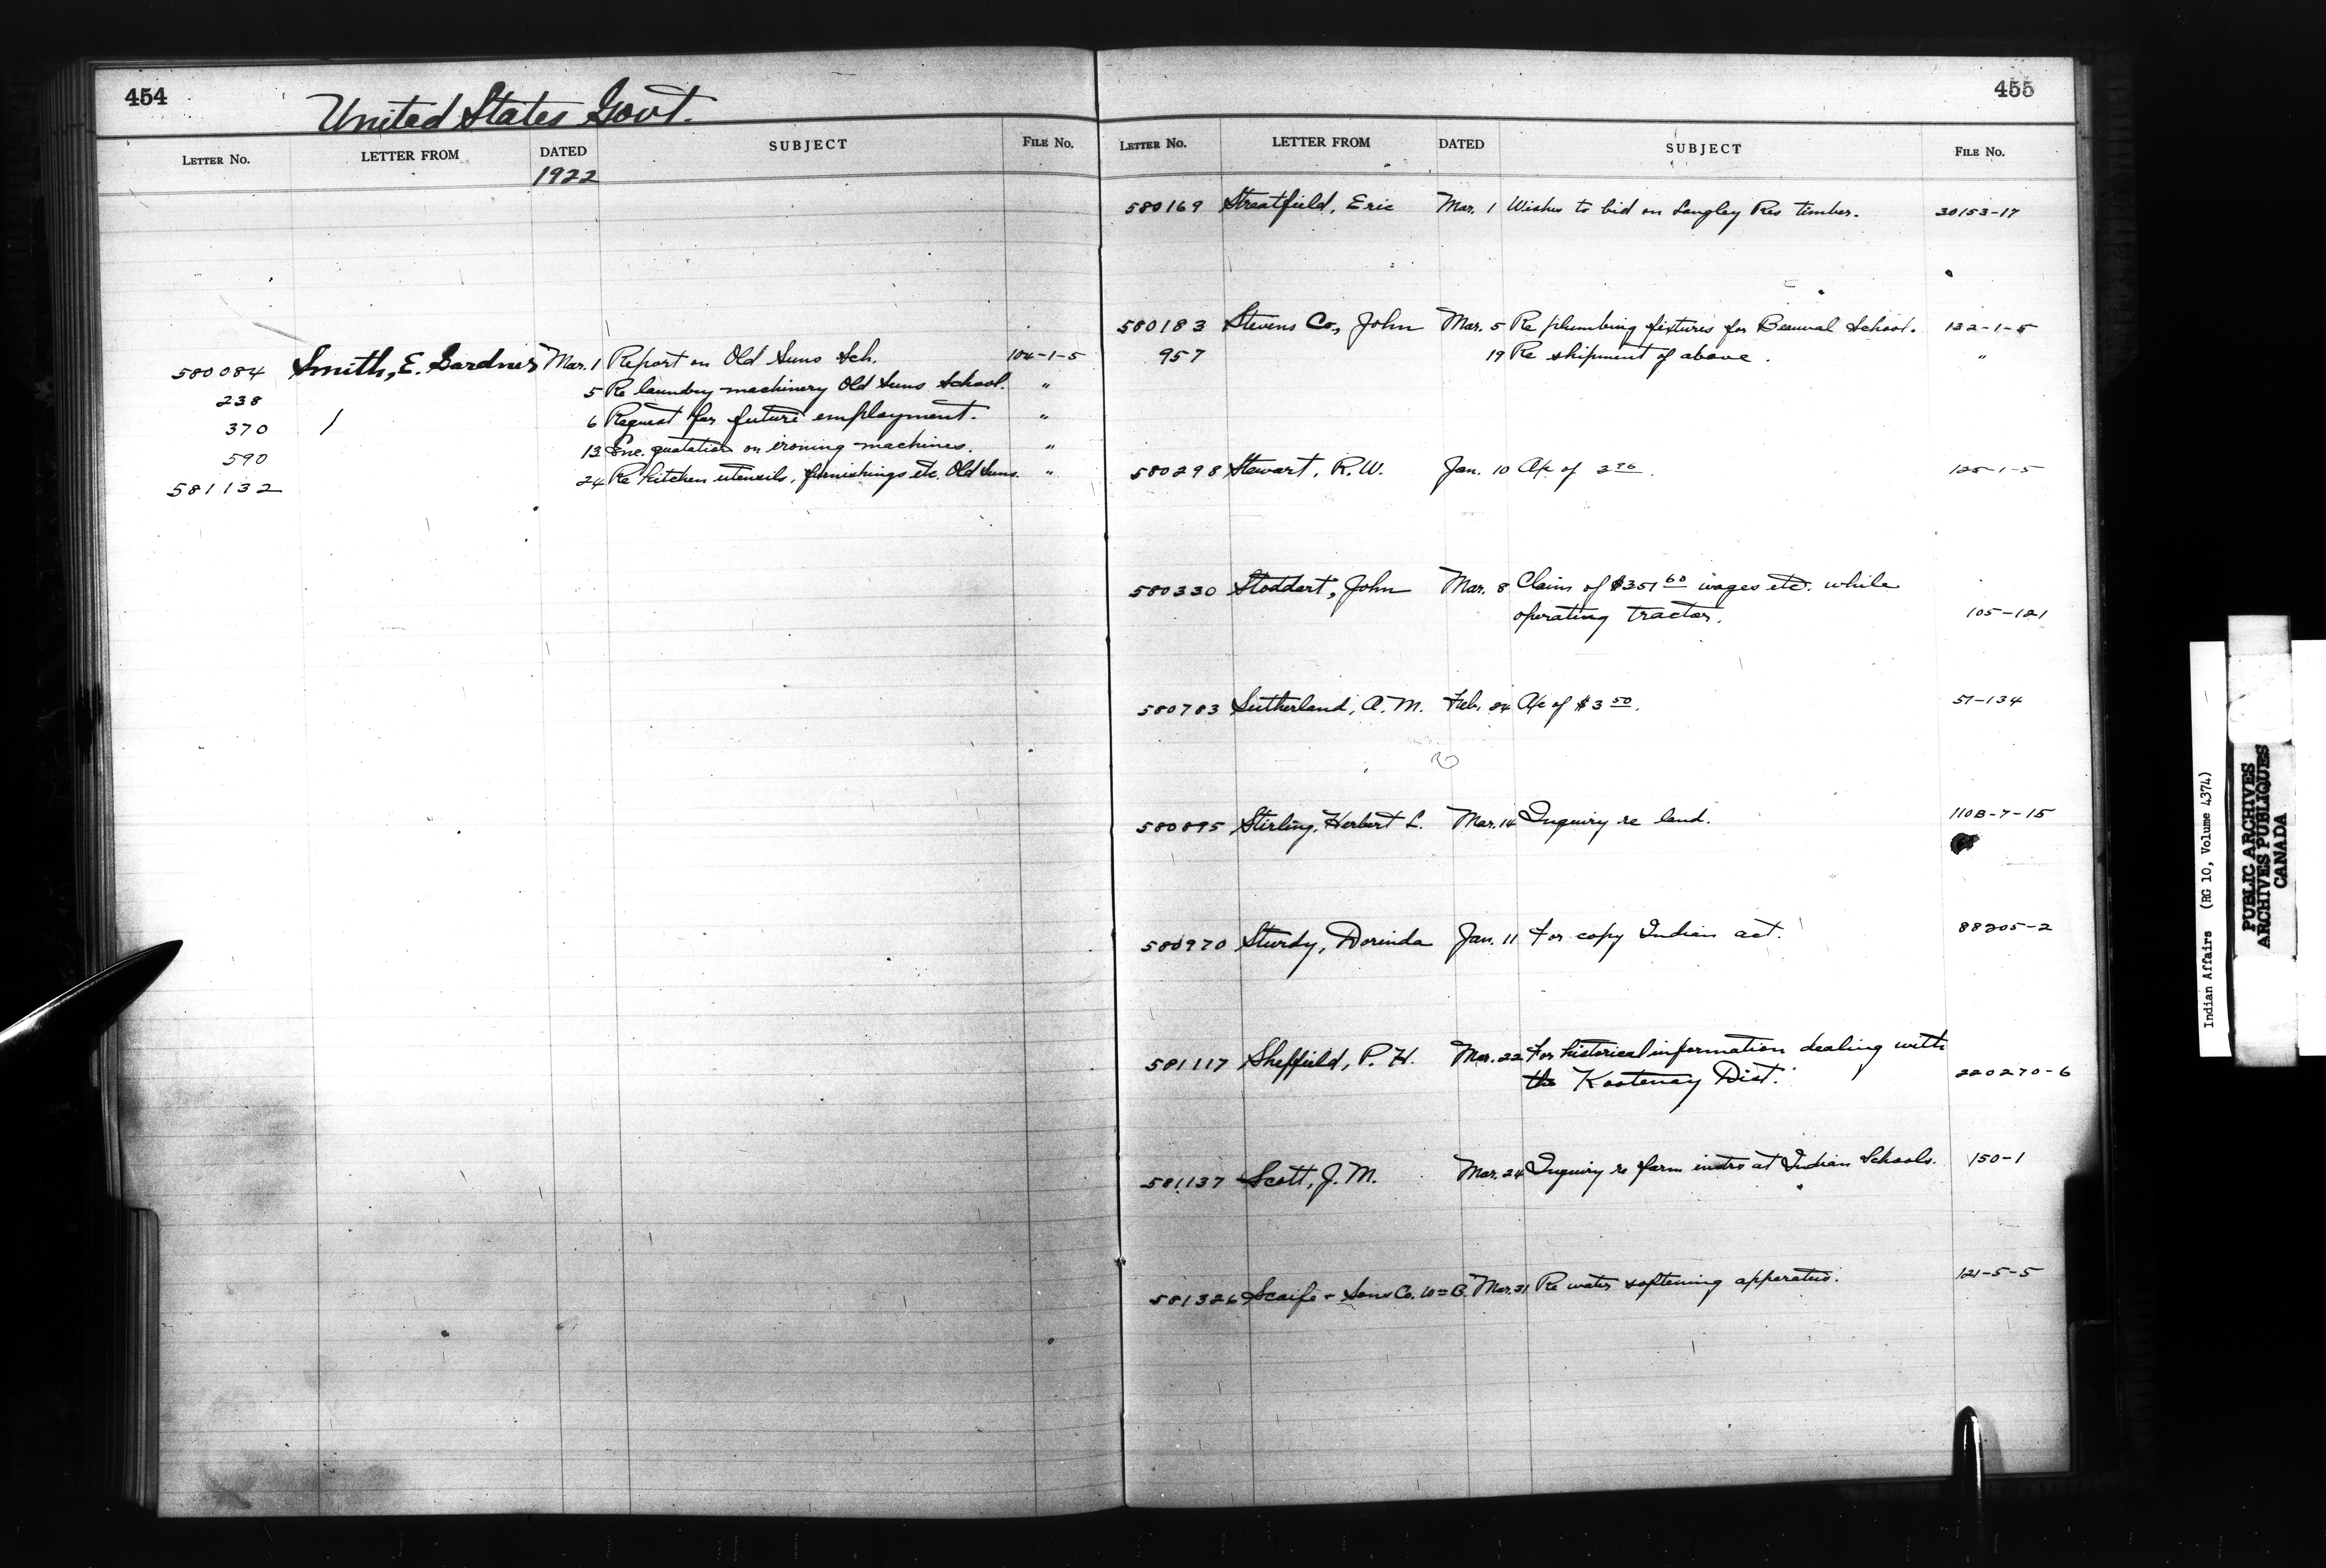 454
United States Govt.
LETTER No. LETTER FROM DATED SUBJECT FILE No.
1922
580084 Smith, E. Gardner Mar. 1 Report on Old Suns Sch. 104-1-5
238 5 Re laundry machinery Old Suns School. "
370 6 Request for future employment. "
590 13 Enc. quotation on ironing machines. "
581132 24 Re kitchen utensils, furnishings etc. Old Suns. "
455
LETTER No. LETTER FROM DATED SUBJECT FILE No.
580169 Streatfield, Eric Mar. 1 Wishes to bid on Langley Res timber. 30153-17
580183 Stevens Co., John Mar. 5 Re plumbing fixtures for Beauval School. 122-1-5
957 19 Re shipment of above. "
580298 Stewart, R.W. Jan. 10 A/c of 2 96. 125-1-5
580330 Stoddart, John Mar. 8 Claim of $351 60 wages etc. while
operating tractor. 105-121
580783 Sutherland, A.M. Feb. 24 A/c of $3 50. 51-134
580895 Stirling, Herbert L. Mar. 14 Inquiry re land. 110B-7-15
580970 Sturdy, Dorinda Jan. 11 For copy Indian act. 88205-2
581117 Sheffield, P.H. Mar. 22 For historical information dealing with
the Kootenay Dist. 220270-6
581137 Scott, J.M. Mar. 24 Inquiry re farm instrs at Indian Schools. 150-1
581326 Scaife & Sons Co. Wm B. Mar. 31 Re water softening apparatus. 121-5-5
Indian Affairs (RG 10, Volume 4374)
PUBLIC ARCHIVES
ARCHIVES PUBLIQUES
CANADA